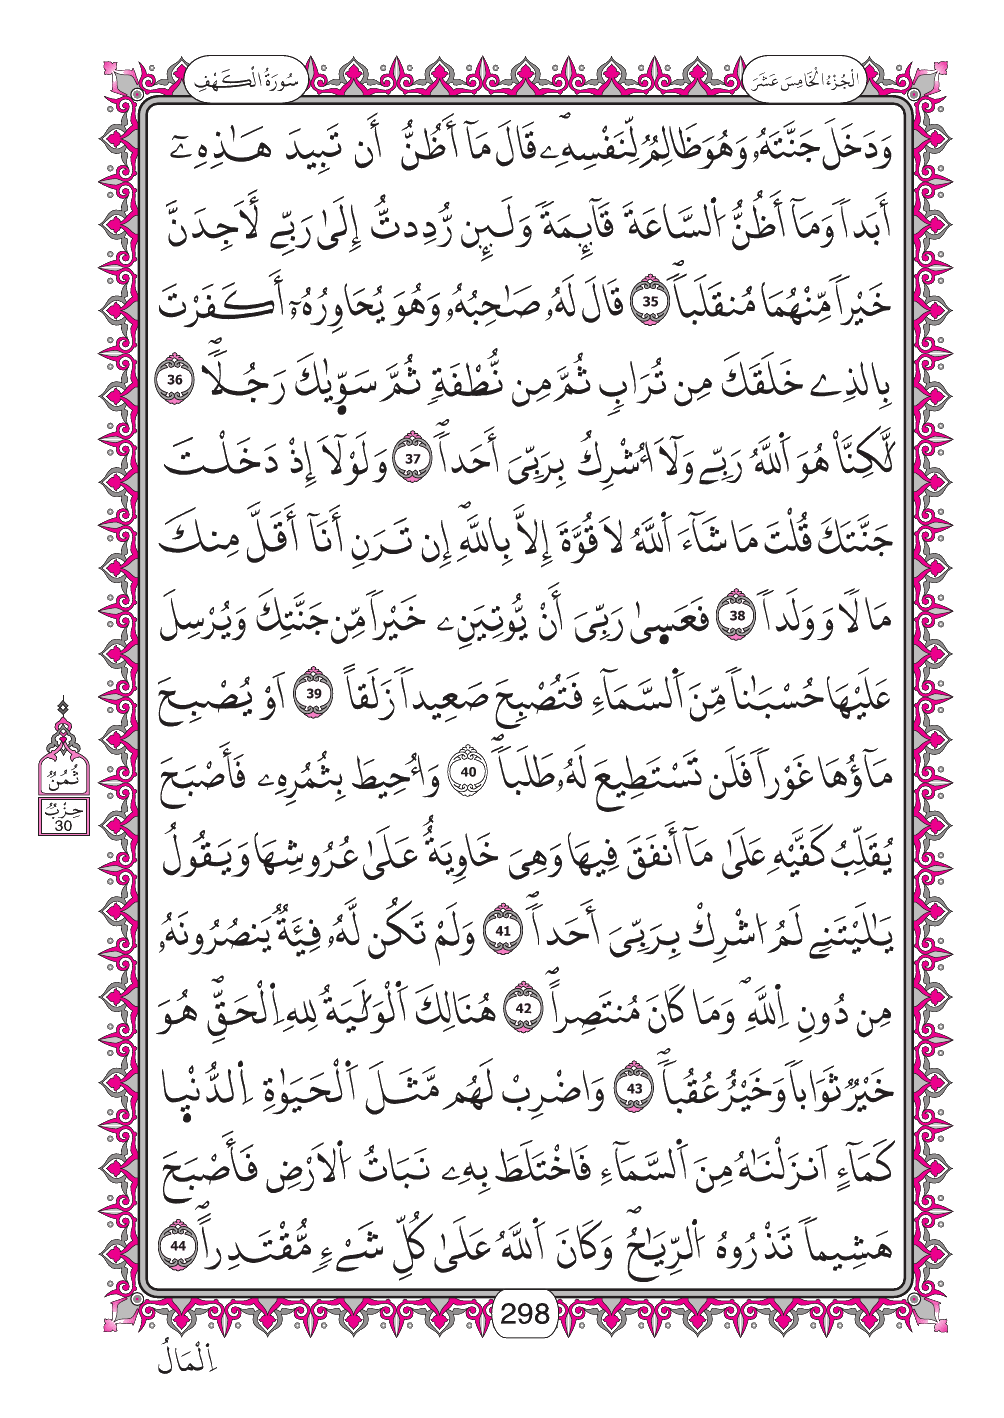 سُورَةُ الْكَهْفِ
الْجُزْءُ الْخَامِسَ عَشَرَ
وَدَخَلَ جَنَّتَهُۥ وَهُوَ ظَالِمٌ لِّنَفْسِهِۦ قَالَ مَآ أَظُنُّ أَن تَبِيدَ هَـٰذِهِۦٓ
أَبَداً وَمَآ أَظُنُّ اَ۬لسَّاعَةَ قَآئِمَةً وَلَئِن رُّدِدتُّ إِلَىٰ رَبِّے لَأَجِدَنَّ
خَيْراً مِّنْهُمَا مُنقَلَباً 35 قَالَ لَهُۥ صَـٰحِبُهُۥ وَهُوَ يُحَاوِرُهُۥٓ أَكَفَرْتَ
بِالذِے خَلَقَكَ مِن تُرَابٍ ثُمَّ مِن نُّطْفَةٍ ثُمَّ سَوّ۪يٰكَ رَجُلًا 36
لَّـٰكِنَّا۠ هُوَ اَ۬للَّهُ رَبِّے وَلَآ أُشْرِكُ بِرَبِّىَ أَحَداً 37 وَلَوْلَآ إِذْ دَخَلْتَ
جَنَّتَكَ قُلْتَ مَا شَآءَ اَ۬للَّهُ لَا قُوَّةَ إِلَّا بِاللَّهِ إِن تَرَنِ أَنَآ أَقَلَّ مِنكَ
مَالًا وَوَلَداً 38 فَعَس۪ىٰ رَبِّىَ أَنْ يُّوتِيَنِۦ خَيْراً مِّن جَنَّتِكَ وَيُرْسِلَ
عَلَيْهَا حُسْبَـٰناً مِّنَ اَ۬لسَّمَآءِ فَتُصْبِحَ صَعِيداً زَلَقاً 39 اَوْ يُصْبِحَ
مَآؤُهَا غَوْراً فَلَن تَسْتَطِيعَ لَهُۥ طَلَباً 40 وَأُحِيطَ بِثُمُرِهِۦ فَأَصْبَحَ
يُقَلِّبُ كَفَّيْهِ عَلَىٰ مَآ أَنفَقَ فِيهَا وَهِىَ خَاوِيَةٌ عَلَىٰ عُرُوشِهَا وَيَقُولُ
يَـٰلَيْتَنِے لَمُ اُشْرِكْ بِرَبِّىَ أَحَداً 41 وَلَمْ تَكُن لَّهُۥ فِئَةٌ يَنصُرُونَهُۥ
مِن دُونِ اِ۬للَّهِ وَمَا كَانَ مُنتَصِراً 42 هُنَالِكَ اَ۬لْوَلَـٰيَةُ لِلهِ اِ۬لْحَقِّ هُوَ
خَيْرٌ ثَوَاباً وَخَيْرٌ عُقُباً 43 وَاضْرِبْ لَهُم مَّثَلَ اَ۬لْحَيَوٰةِ اِ۬لدُّنْي۪ا
كَمَآءٍ اَنزَلْنَـٰهُ مِنَ اَ۬لسَّمَآءِ فَاخْتَلَطَ بِهِۦ نَبَاتُ اُ۬لَارْضِ فَأَصْبَحَ
هَشِيماً تَذْرُوهُ اُ۬لرِّيَـٰحُ وَكَانَ اَ۬للَّهُ عَلَىٰ كُلِّ شَےْءٍ مُّقْتَدِراً 44
ثُمُنُ
حِزْبُ
30
298
اِ۬لْمَالُ